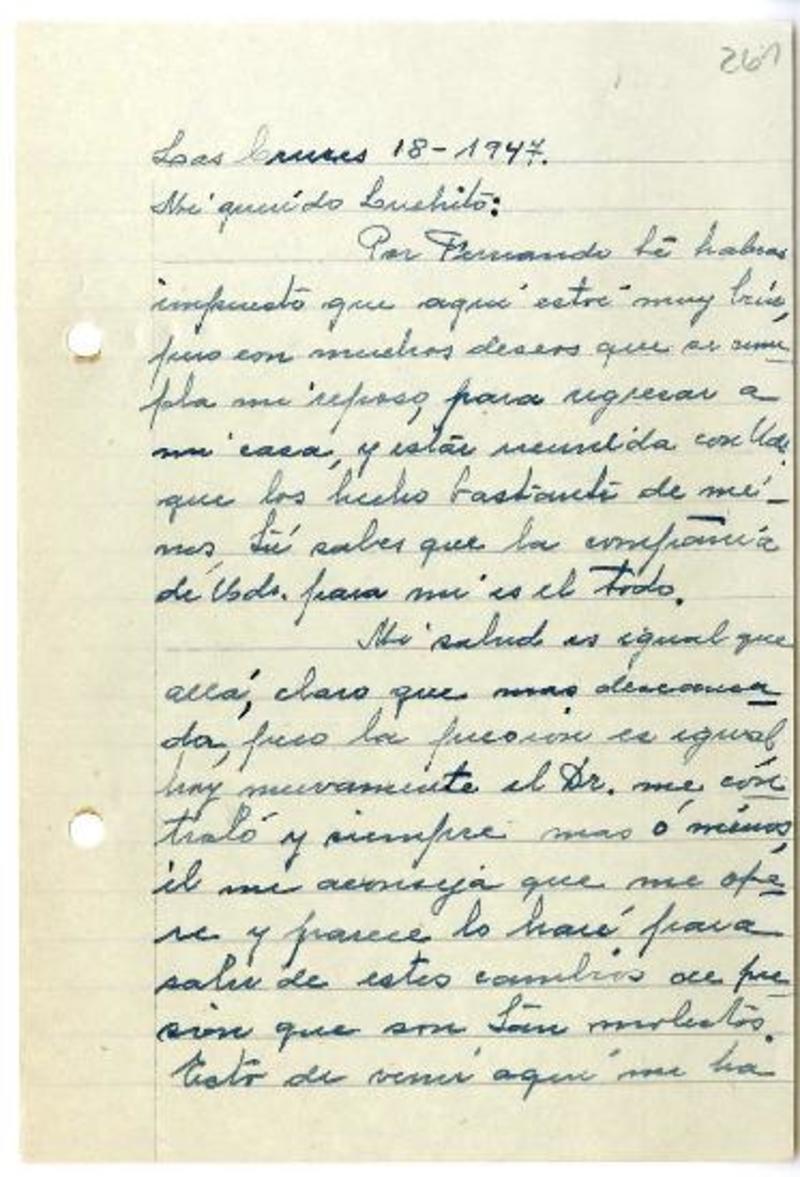 261
Las Cruces 18-1947.
Mi querido Luchito:
Por Fernando té habras
impuesto que aquí estoi muy bién,
pero con muchos deseos que se cum
pla mi reposo, para regresar a
mi casa, y estár reunida con Uds.
que los hecho bastante de mé-
nos, Tú sabes que la compañía
de Uds. para mi es el todo.
Mi salud es igual que
allá, claro que mas descansa
da, pero la presion es igual
hoy nuevamente el Dr. me cón
troló y siempre mas ó ménos,
él me aconseja que me opé
re y parece lo haré para
salir de estos cambios de pre
sión que son tán molestos.
Esto de venir aquí me ha